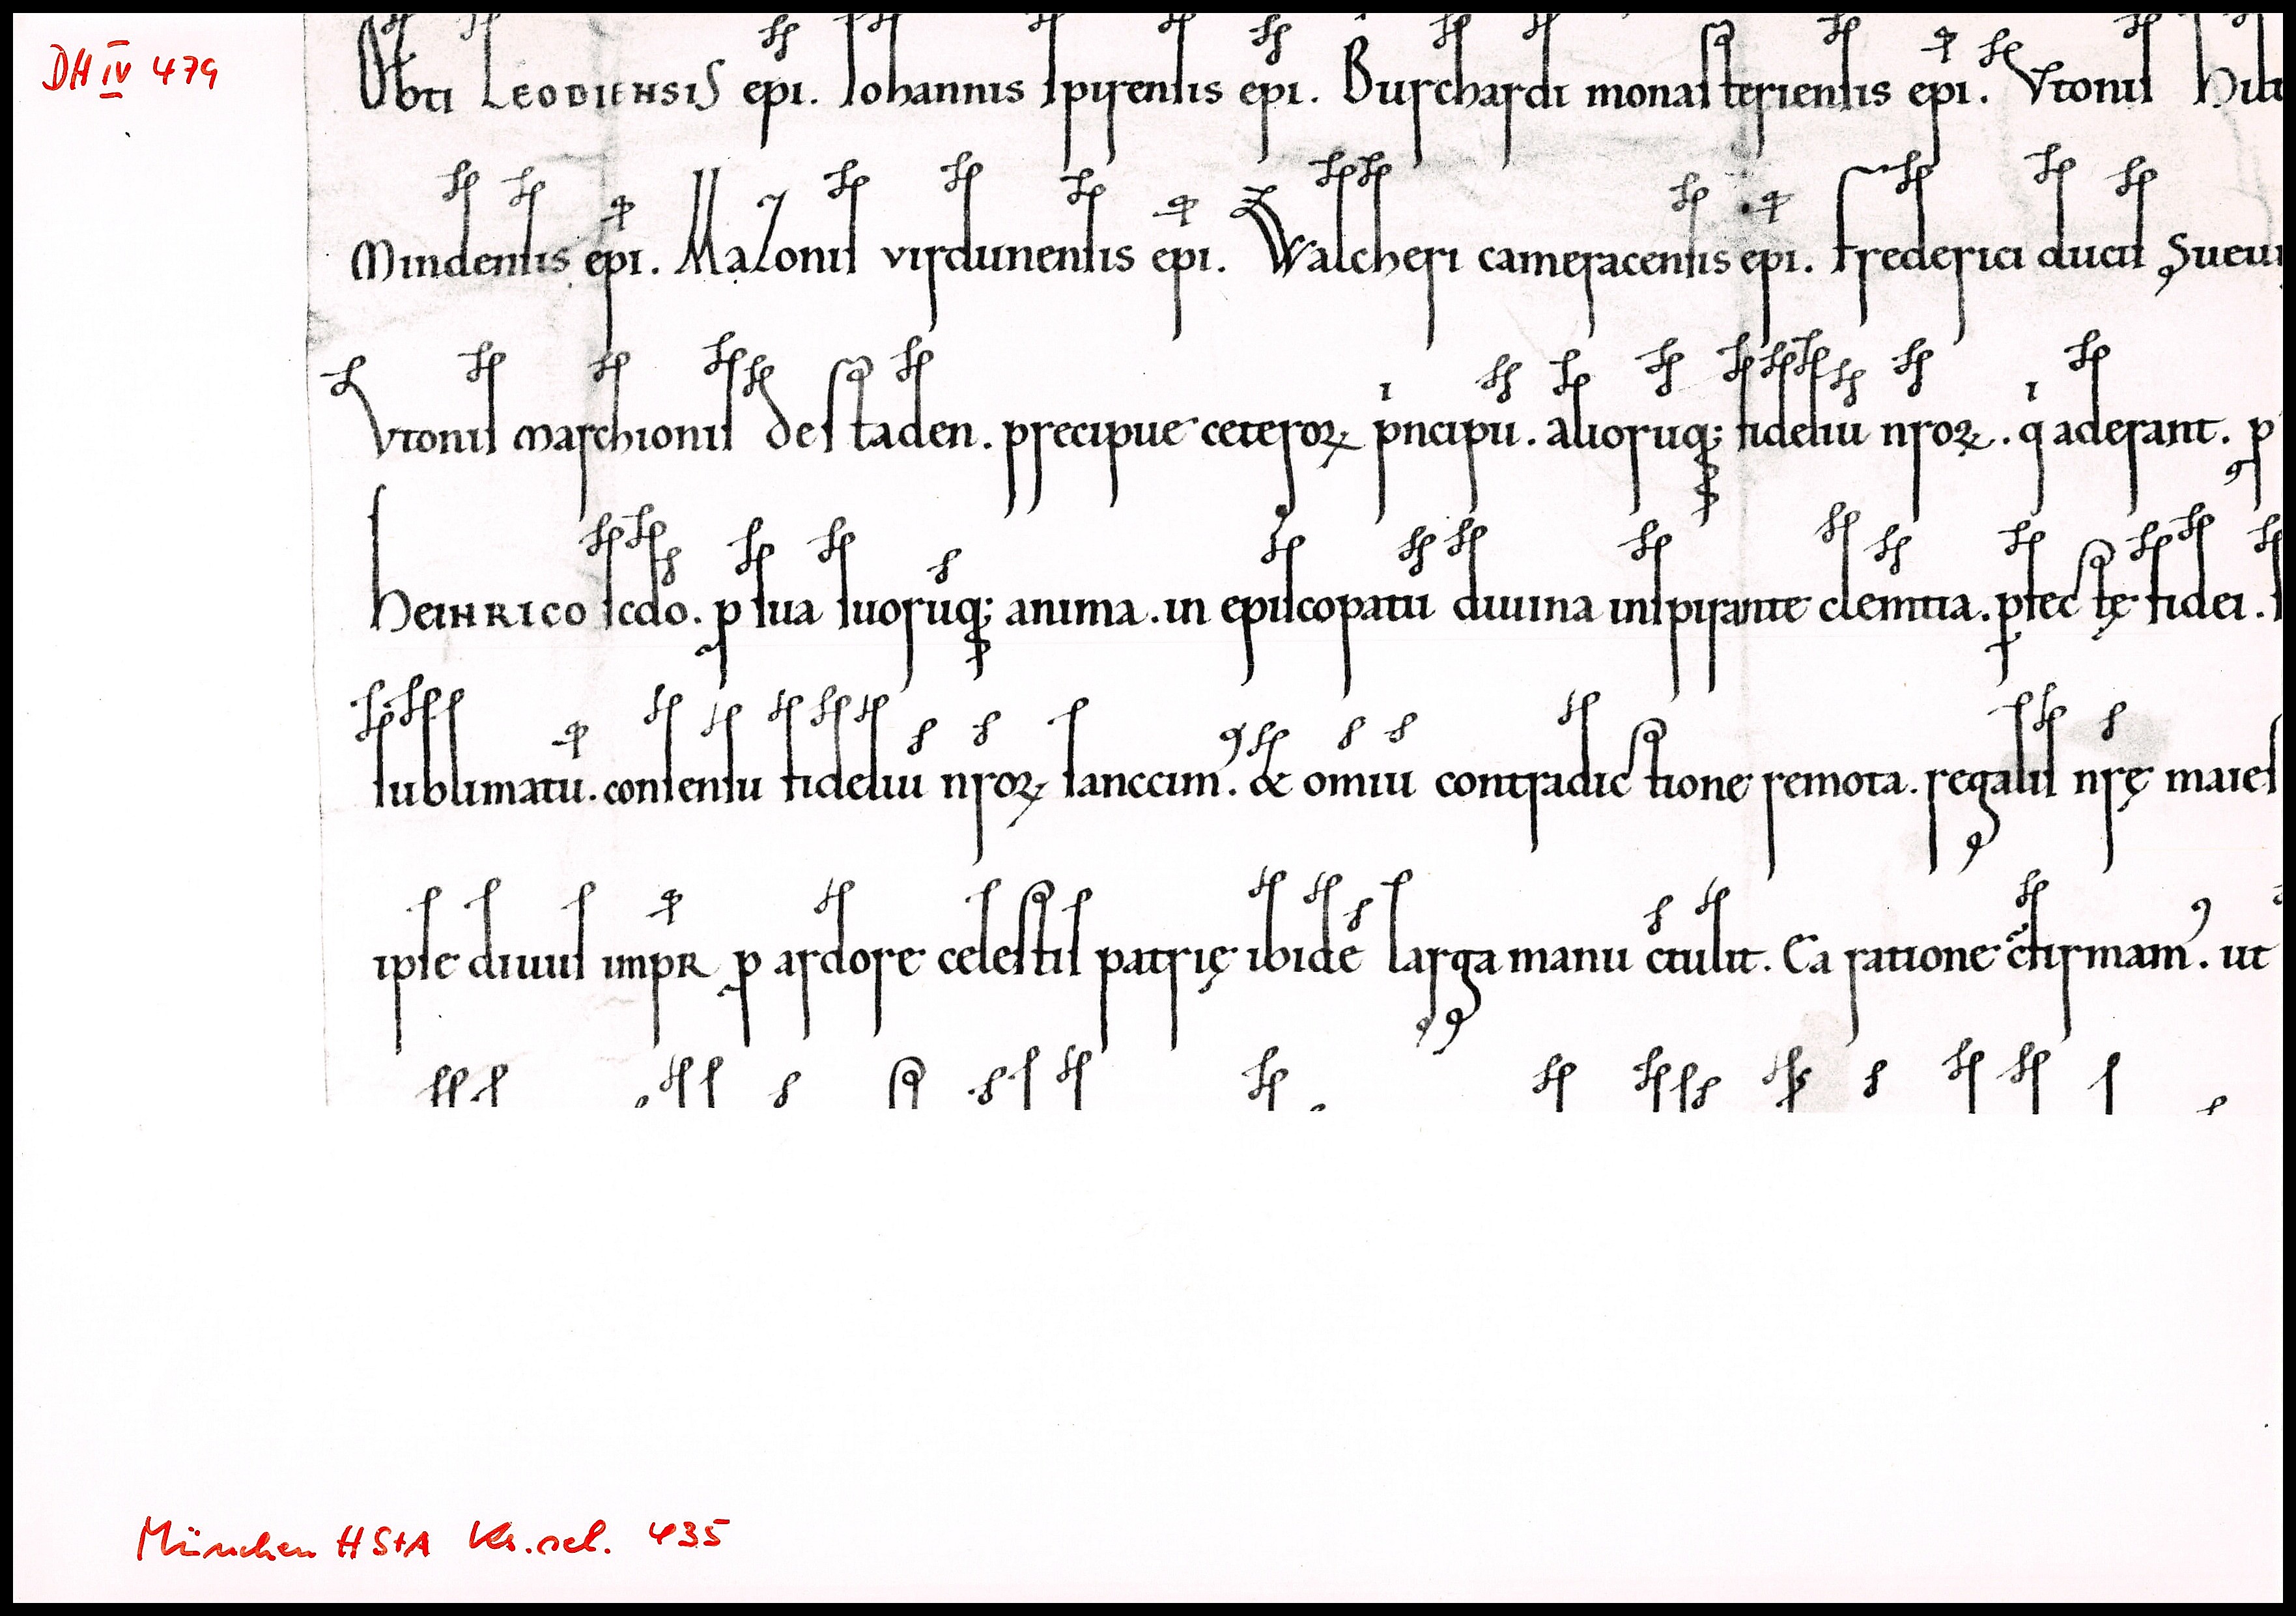 DH IV 479
Obti LEODIENSIS epi. Iohannis spirensis epi. Burchardi monasteriensis epi. Vtonis Hild
Mindensis epi. Mazonis virdunensis epi. Walcheri cameracensis epi. Frederici ducis Sueui
Vtonis marchionis de staden. precipue ceteroꝝ pͥncipū. alioruq; fideliū nroꝝ. qͥ aderant. p
HEINRICO scdo. ꝓ sua suorūq; anima. in episcopatū diuina inspirante clemtia. ꝓfectę fidei.
sublimatū. consensu fideliū nroꝝ sanccim᾽. & omiū contradictione remota. regalis nrę maies
ipse diuus impR ꝓ ardore celestis patrię ibidē larga manu ctulit. Ea ratione cfirmam᾽. ut
München HStA Ks. sel. 435